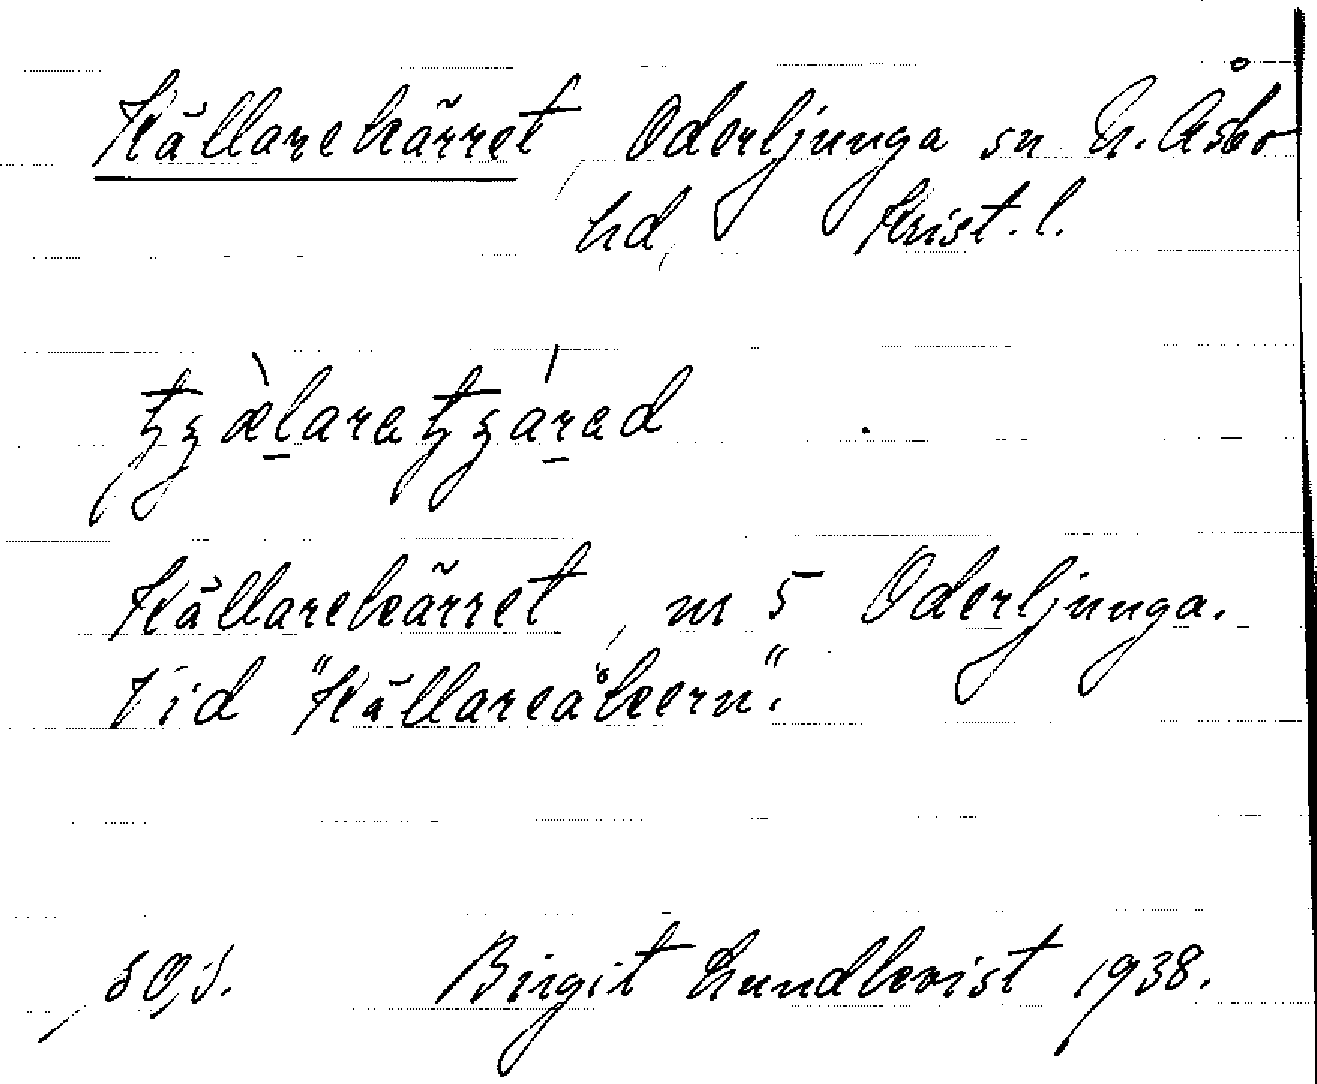 Källarekärret, Oderljunga sn N. Åsbo
hd, Krist. l.
tʒæ̀laretʒárəd
Källarekärret, nr 5 Oderljunga.
Vid "Källareåkern".
Birgit Lundkvist 1938.